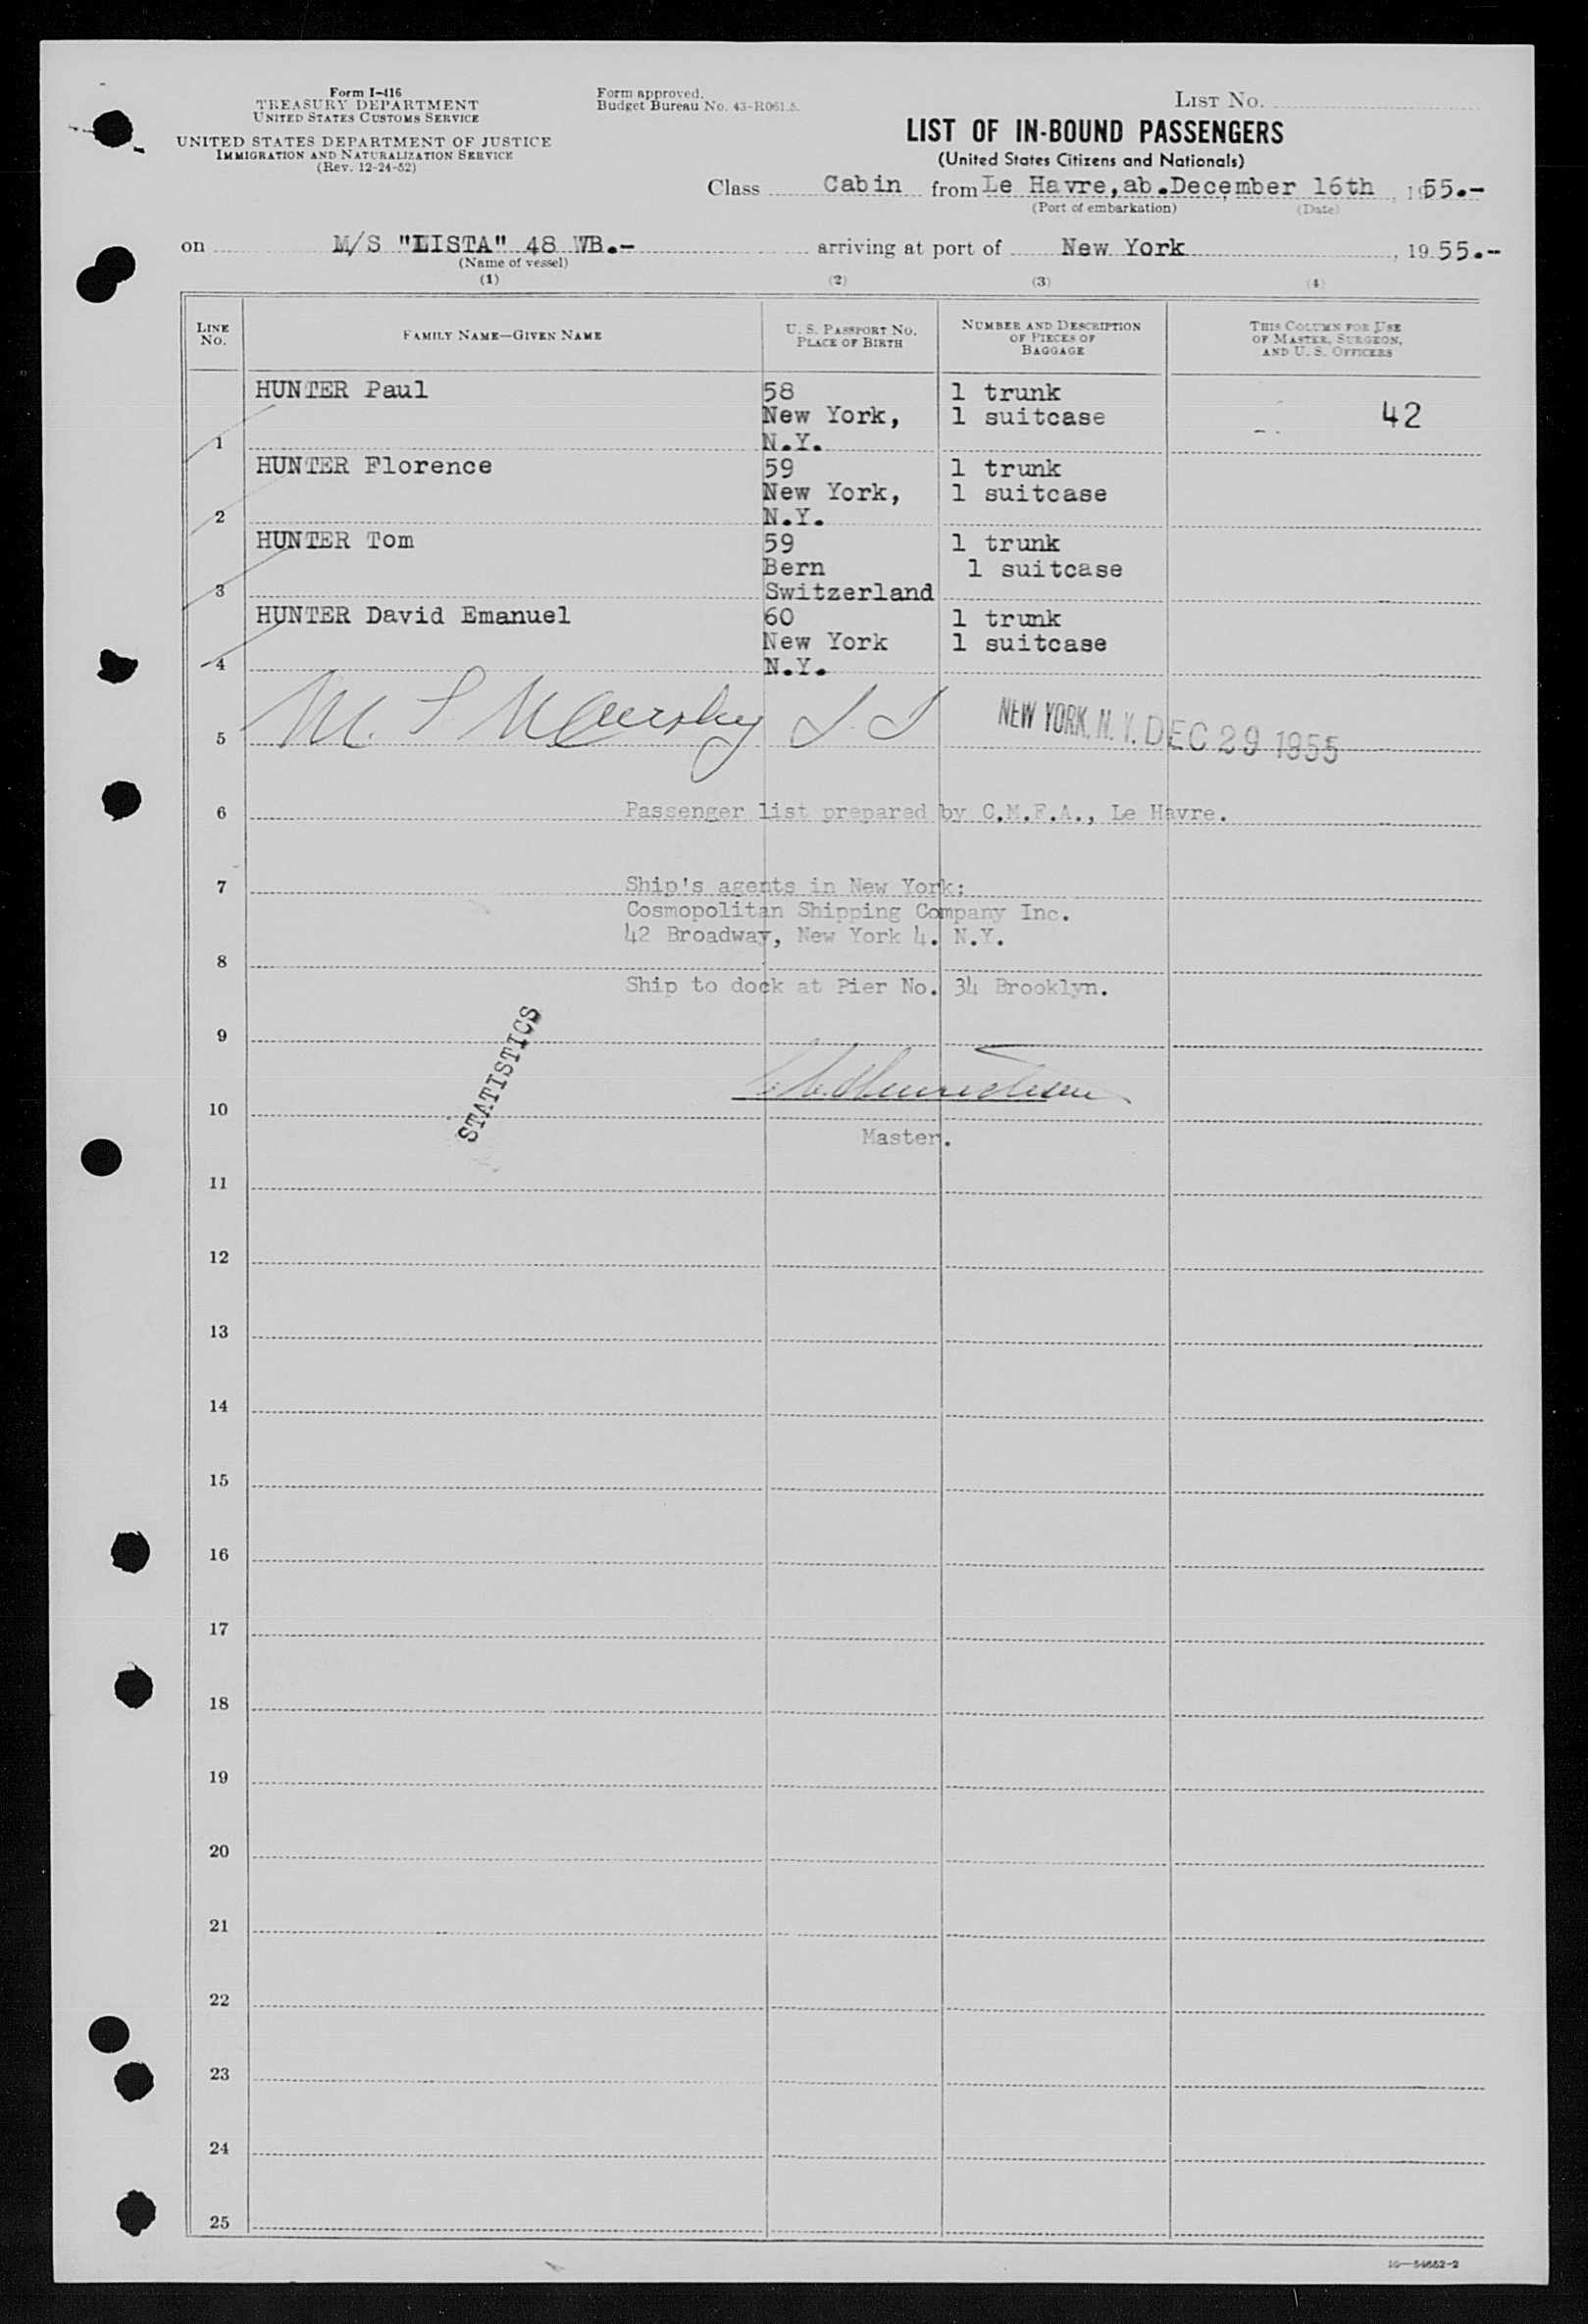 Form I-416
TREASURY DEPARTMENT
UNITED STATES CUSTOMS SERVICE
UNITED STATES DEPARTMENT OF JUSTICE
IMMIGRATION AND NATURALIZATION SERVICE
(Rev. 12-24-52)
Form approved.
Budget Bureau No. 43-R061.5.
LIST NO.
LIST OF IN-BOUND PASSENGERS
(United States Citizens and Nationals)
Class Cabin from Le Havre, ab. December 16th, 1955.-
(Port of embarkation) (Date)
on M/S "LISTA" 48 WB.- arriving at port of New York, 1955.-
(Name of vessel)
(1) (2) (3) (4)
LINE NO.
FAMILY NAME—GIVEN NAME
U. S. PASSPORT NO.
PLACE OF BIRTH
NUMBER AND DESCRIPTION
OF PIECES OF
BAGGAGE
THIS COLUMN FOR USE
OF MASTER, SURGEON,
AND U. S. OFFICERS
HUNTER Paul 58 1 trunk
New York, 1 suitcase 42
1 N.Y.
HUNTER Florence 59 1 trunk
New York, 1 suitcase
2 N.Y.
HUNTER Tom 59 1 trunk
Bern 1 suitcase
3 Switzerland
HUNTER David Emanuel 60 1 trunk
New York 1 suitcase
4 N.Y.
5 NEW YORK, N. Y. DEC 29 1955
6 Passenger list prepared by C.M.F.A., Le Havre.
7 Ship's agents in New York:
Cosmopolitan Shipping Company Inc.
42 Broadway, New York 4. N.Y.
8
Ship to dock at Pier No. 34 Brooklyn.
9
STATISTICS
10
Master.
11
12
13
14
15
16
17
18
19
20
21
22
23
24
25
16—54652-2